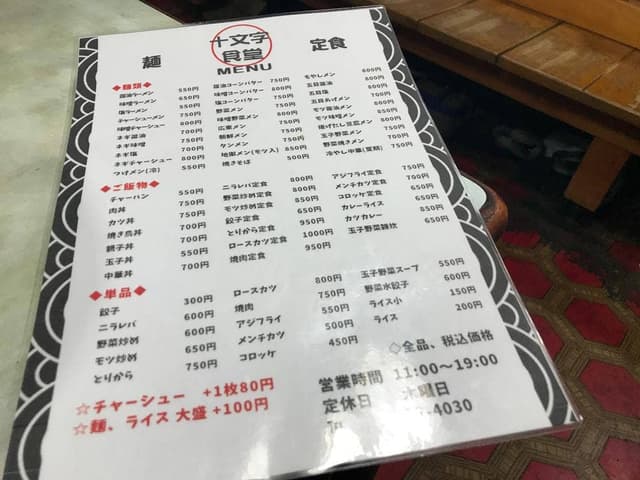 麺
十文字
食堂
MENU
定食
◆麺類◆
醤油ラーメン 550円
味噌ラーメン 650円
塩ラーメン 550円
チャーシューメン
味噌チャーシュー 800円
ネギ醤油
ネギ味噌
ネギ塩
ネギチャーシュー 800円
つけメン(冷) 550円
醤油コーンバター 750円
味噌コーンバター 800円
塩コーンバター 750円
野菜メン
味噌野菜メン
広東メン
朝鮮メン
タンメン 750円
地獄メン(モツ入) 850円
焼きそば 500円
もやしメン 600円
五目醤油 800円
五目塩
五目あげメン
モツ醤油メン
モツ味噌メン
揚げだし豆腐メン
玉子野菜メン
野菜焼きメン
冷やし中華(夏期)
◆ご飯物◆
チャーハン 550円
肉丼 750円
カツ丼 750円
焼き鳥丼 700円
親子丼 700円
玉子丼 550円
中華丼 700円
ニラレバ定食 800円
野菜炒め定食 800円
モツ炒め定食 850円
餃子定食 650円
とりから定食 950円
ロースカツ定食 1000円
焼肉定食 950円
アジフライ定食 750円
メンチカツ定食 700円
コロッケ定食 650円
カレーライス 650円
カツカレー 850円
玉子野菜雑炊 650円
◆単品◆
餃子 300円
ニラレバ 600円
野菜炒め 600円
モツ炒め 650円
とりから 750円
ロースカツ 800円
焼肉 750円
アジフライ 550円
メンチカツ 500円
コロッケ 450円
玉子野菜スープ 550円
野菜水餃子 600円
ライス小 150円
ライス 200円
◇全品、税込価格
☆チャーシュー +1枚80円
☆麺、ライス 大盛 +100円
営業時間 11:00〜19:00
定休日 木曜日
4030